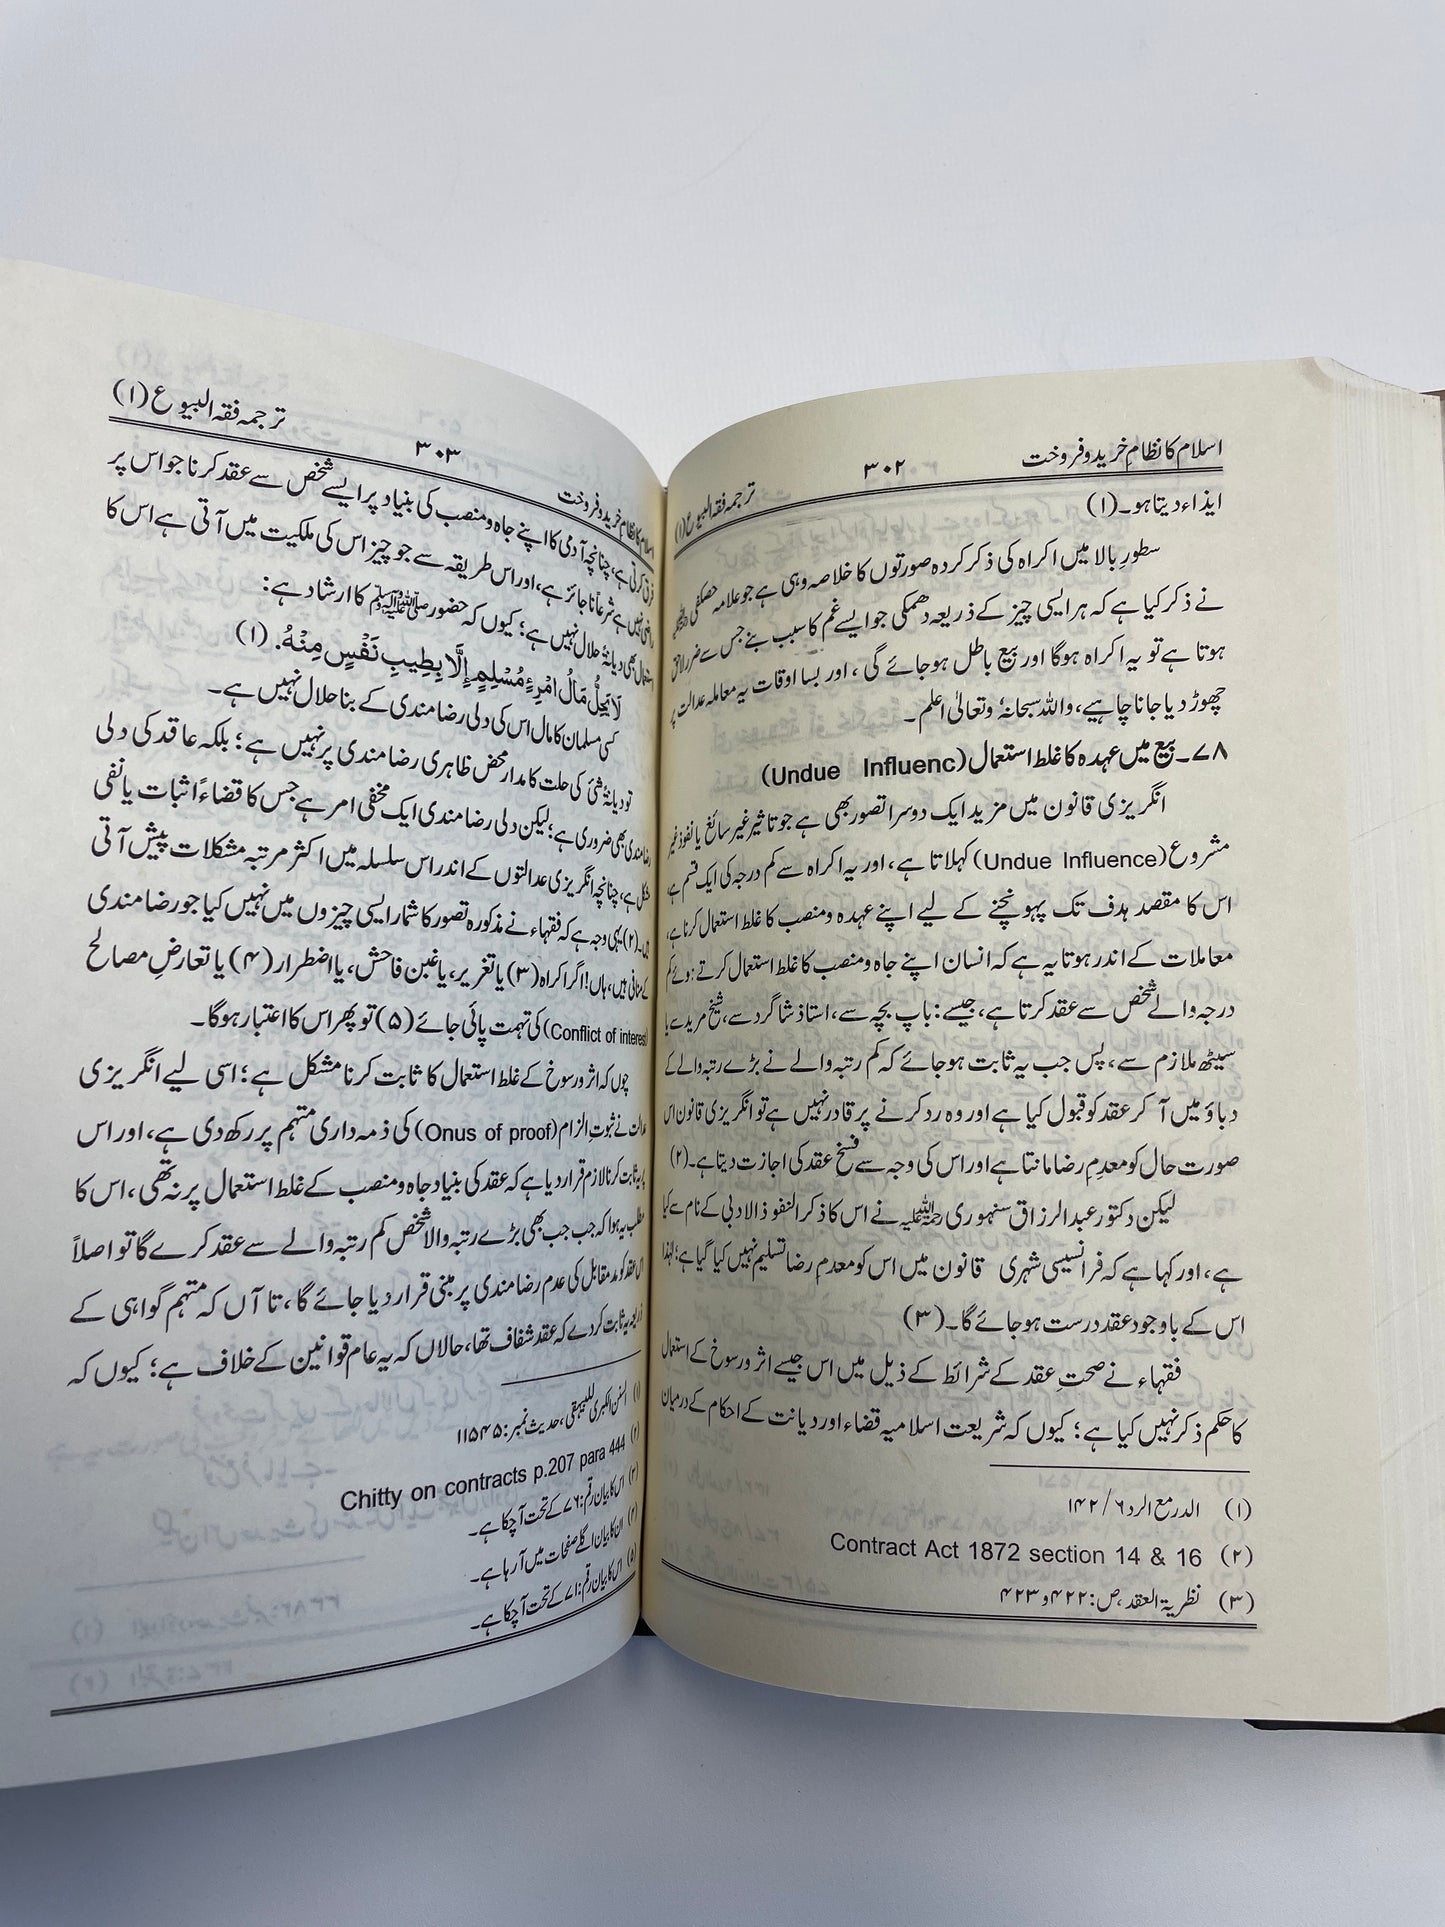 اسلام کا نظامِ خرید و فروخت ۳۰۲ ترجمہ فقہ البیوع (۱)
ایذاء دیتا ہو۔ (۱)
سطورِ بالا میں اکراہ کی ذکر کردہ صورتوں کا خلاصہ وہی ہے جو علامہ حصکفی رحمہ اللہ
نے ذکر کیا ہے کہ ہر ایسی چیز کے ذریعہ دھمکی جو ایسے غم کا سبب بنے جس سے ضرر لاحق
ہوتا ہے تو یہ اکراہ ہوگا اور بیع باطل ہوجائے گی، اور بسا اوقات یہ معاملہ عدالت پر
چھوڑ دیا جانا چاہیے، واللہ سبحانہٗ وتعالیٰ اعلم۔
۷۸۔ بیع میں عہدہ کا غلط استعمال (Undue Influenc)
انگریزی قانون میں مزید ایک دوسرا تصور بھی ہے جو تاثیر غیر سائغ یا نفوذ غیر
مشروع (Undue Influence) کہلاتا ہے، اور یہ اکراہ سے کم درجہ کی ایک قسم ہے،
اس کا مقصد ہدف تک پہونچنے کے لیے اپنے عہدہ ومنصب کا غلط استعمال کرنا ہے،
معاملات کے اندر ہوتا یہ ہے کہ انسان اپنے جاہ ومنصب کا غلط استعمال کرتے ہوئے کم
درجہ والے شخص سے عقد کرتا ہے، جیسے: باپ بچہ سے، استاذ شاگرد سے، شیخ مرید سے یا
سیٹھ ملازم سے، پس جب یہ ثابت ہوجائے کہ کم رتبہ والے نے بڑے رتبہ والے کے
دباؤ میں آ کر عقد کو قبول کیا ہے اور وہ رد کرنے پر قادر نہیں ہے تو انگریزی قانون اس
صورت حال کو معدمِ رضا مانتا ہے اور اس کی وجہ سے فسخ عقد کی اجازت دیتا ہے۔ (۲)
لیکن دکتور عبد الرزاق سنہوری رحمہ اللہ نے اس کا ذکر النفوذ الادبی کے نام سے کیا
ہے، اور کہا ہے کہ فرانسیسی شہری قانون میں اس کو معدمِ رضا تسلیم نہیں کیا گیا ہے؛ لہٰذا
اس کے باوجود عقد درست ہوجائے گا۔ (۳)
فقہاء نے صحتِ عقد کے شرائط کے ذیل میں اس جیسے اثر ورسوخ کے استعمال
کا حکم ذکر نہیں کیا ہے؛ کیوں کہ شریعت اسلامیہ قضاء اور دیانت کے احکام کے درمیان
(۱) الدر مع الرد ۶/۱۴۲
(۲) Contract Act 1872 section 14 & 16
(۳) نظریۃ العقد، ص: ۴۲۲ و ۴۲۳
اسلام کا نظامِ خرید و فروخت ۳۰۳ ترجمہ فقہ البیوع (۱)
فرق کرتی ہے، چنانچہ آدمی کا اپنے جاہ ومنصب کی بنیاد پر ایسے شخص سے عقد کرنا جو اس پر
راضی نہیں ہے شرعاً ناجائز ہے، اور اس طریقہ سے جو چیز اس کی ملکیت میں آتی ہے اس کا
استعمال بھی دیانۃً حلال نہیں ہے؛ کیوں کہ حضور ﷺ کا ارشاد ہے:
لَا يَحِلُّ مَالُ امْرِءٍ مُسْلِمٍ إِلَّا بِطِيبِ نَفْسٍ مِنْهُ. (۱)
کسی مسلمان کا مال اس کی دلی رضامندی کے بنا حلال نہیں ہے۔
تو دیانۃً شئ کی حلت کا مدار محض ظاہری رضامندی پر نہیں ہے؛ بلکہ عاقد کی دلی
رضامندی بھی ضروری ہے؛ لیکن دلی رضامندی ایک مخفی امر ہے جس کا قضاءً اثبات یا نفی
مشکل ہے، چنانچہ انگریزی عدالتوں کے اندر اس سلسلہ میں اکثر مرتبہ مشکلات پیش آتی
ہیں۔ (۲) یہی وجہ ہے کہ فقہاء نے مذکورہ تصور کا شمار ایسی چیزوں میں نہیں کیا جو رضامندی
کے منافی ہیں، ہاں! اگر اکراہ (۳) یا تغریر، یا غبن فاحش، یا اضطرار (۴) یا تعارضِ مصالح
(Conflict of interest) کی تہمت پائی جائے (۵) تو پھر اس کا اعتبار ہوگا۔
چوں کہ اثر ورسوخ کے غلط استعمال کا ثابت کرنا مشکل ہے؛ اسی لیے انگریزی
عدالت نے ثبوتِ الزام (Onus of proof) کی ذمہ داری متہم پر رکھ دی ہے، اور اس
پر یہ ثابت کرنا لازم قرار دیا ہے کہ عقد کی بنیاد جاہ ومنصب کے غلط استعمال پر نہ تھی، اس کا
مطلب یہ ہوا کہ جب جب بھی بڑے رتبہ والا شخص کم رتبہ والے سے عقد کرے گا تو اصلاً
اس عقد کو مدمقابل کی عدم رضامندی پر مبنی قرار دیا جائے گا، تا آں کہ متہم گواہی کے
ذریعہ یہ ثابت کردے کہ عقد شفاف تھا، حالاں کہ یہ عام قوانین کے خلاف ہے؛ کیوں کہ
(۱) السنن الکبری للبیہقی، حدیث نمبر: ۱۱۵۴۵
(۲) Chitty on contracts p.207 para 444
(۳) اس کا بیان رقم: ۷۶ کے تحت آ چکا ہے۔
(۴) ان کا بیان اگلے صفحات میں آ رہا ہے۔
(۵) اس کا بیان رقم: ۷۱ کے تحت آ چکا ہے۔